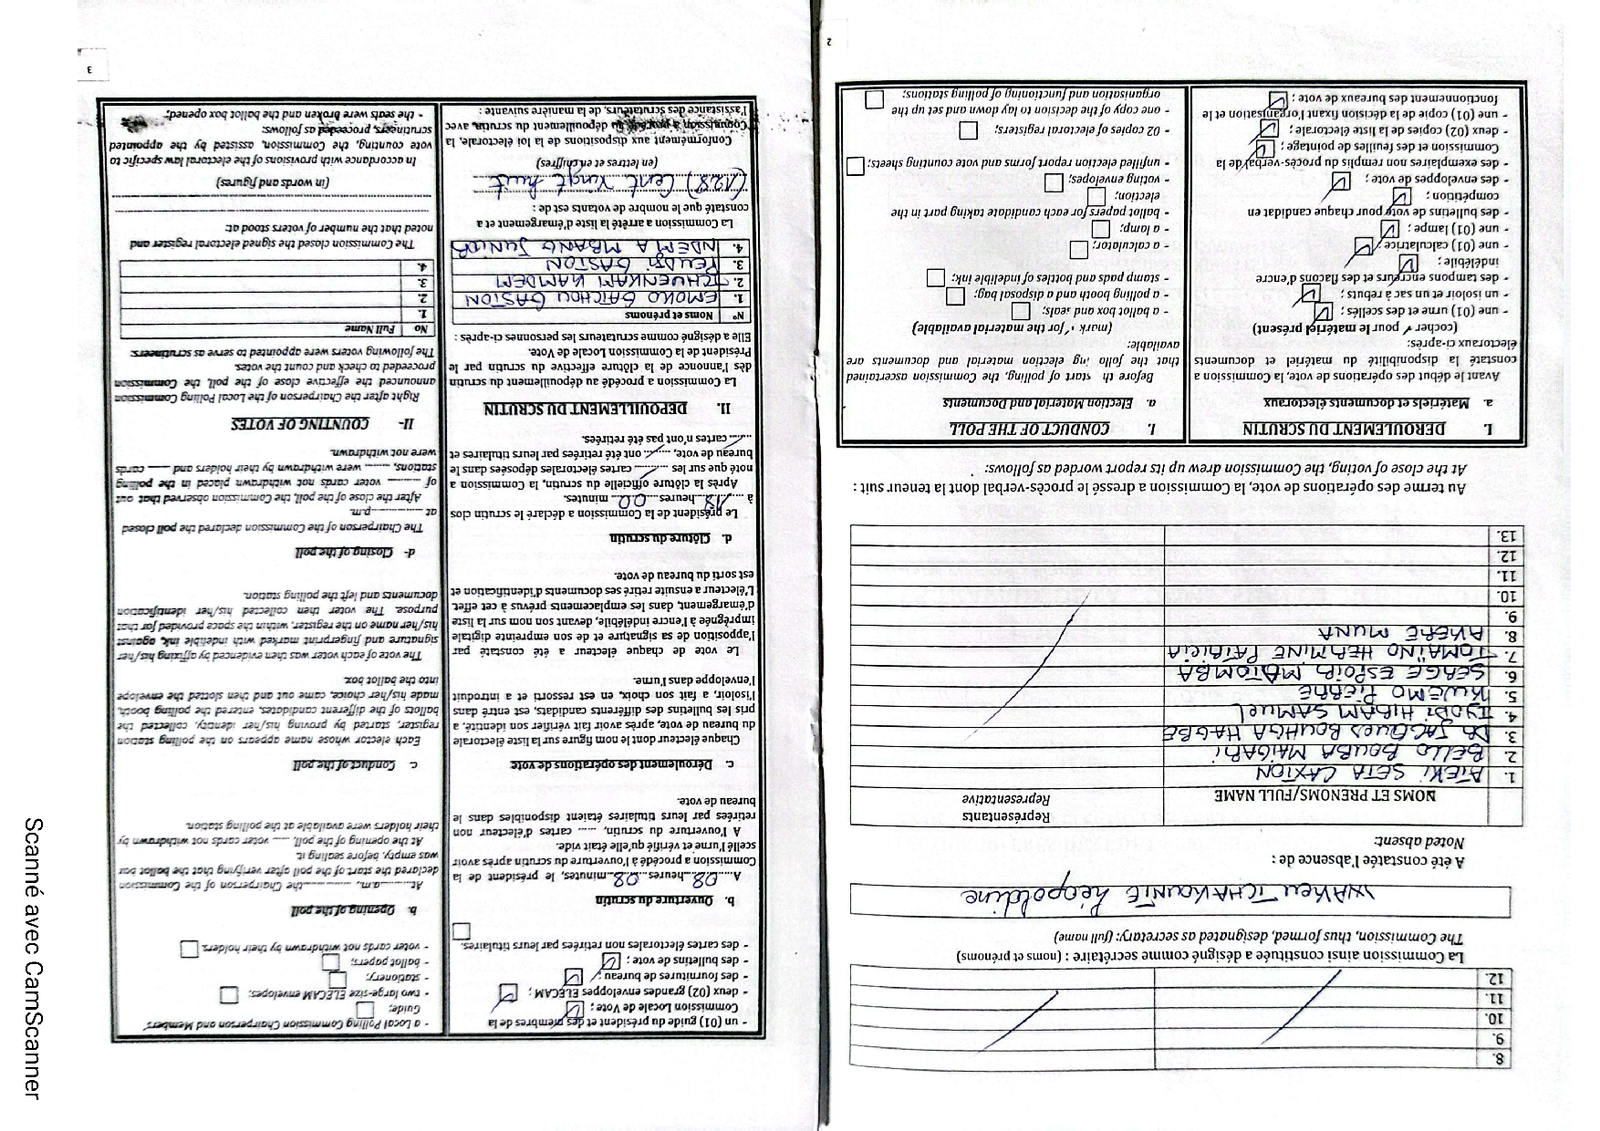 8.
9.
10.
11.
12.
La Commission ainsi constituée a désigné comme secrétaire : (noms et prénoms)
The Commission, thus formed, designated as secretary: (full name)
WAKEU TCHAKOUNTE Léopoldine
A été constatée l'absence de :
Noted absent:
NOMS ET PRENOMS/FULL NAME Représentants
Representative
1. ATEKI SETA CAXTON
2. BELLO BOUBA MAIGARI
3. DR JACQUES BOUHGA HAGBE
4. IYODI HIRAM SAMUEL
5. KWEMO PIERRE
6. SERGE ESPOIR MATOMBA
7. TOMAÏNO HERMINE PATRICIA
8. AKERE MUNA
9.
10.
11.
12.
13.
Au terme des opérations de vote, la Commission a dressé le procès-verbal dont la teneur suit :
At the close of voting, the Commission drew up its report worded as follows:
I. DEROULEMENT DU SCRUTIN
a. Matériels et documents électoraux
Avant le début des opérations de vote, la Commission a
constaté la disponibilité du matériel et documents
électoraux ci-après:
(cocher ✓ pour le matériel présent)
- une (01) urne et des scellés ;
- un isoloir et un sac à rebuts ;
- des tampons encreurs et des flacons d'encre
indélébile ;
- une (01) calculatrice ;
- une (01) lampe ;
- des bulletins de vote pour chaque candidat en
compétition ;
- des enveloppes de vote ;
- des exemplaires non remplis du procès-verbal de la
Commission et des feuilles de pointage ;
- deux (02) copies de la liste électorale ;
- une (01) copie de la décision fixant l'organisation et le
fonctionnement des bureaux de vote ;
I. CONDUCT OF THE POLL
a. Election Material and Documents
Before th start of polling, the Commission ascertained
that the follo ing election material and documents are
available:
(mark ✓ for the material available)
- a ballot box and seals;
- a polling booth and a disposal bag;
- stamp pads and bottles of indelible ink;
- a calculator;
- a lamp;
- ballot papers for each candidate taking part in the
election;
- voting envelopes;
- unfilled election report forms and vote counting sheets;
- 02 copies of electoral registers;
- one copy of the decision to lay down and set up the
organisation and functioning of polling stations;
2
- un (01) guide du président et des membres de la
Commission Locale de Vote ;
- deux (02) grandes enveloppes ELECAM ;
- des fournitures de bureau ;
- des bulletins de vote ;
- des cartes électorales non retirées par leurs titulaires.
b. Ouverture du scrutin
A 08 heures 08 minutes, le président de la
Commission a procédé à l'ouverture du scrutin après avoir
scellé l'urne et vérifié qu'elle était vide.
A l'ouverture du scrutin, ...... cartes d'électeur non
retirées par leurs titulaires étaient disponibles dans le
bureau de vote.
c. Déroulement des opérations de vote
Chaque électeur dont le nom figure sur la liste électorale
du bureau de vote, après avoir fait vérifier son identité, a
pris les bulletins des différents candidats, est entré dans
l'isoloir, a fait son choix, en est ressorti et a introduit
l'enveloppe dans l'urne.
Le vote de chaque électeur a été constaté par
l'apposition de sa signature et de son empreinte digitale
imprégnée à l'encre indélébile, devant son nom sur la liste
d'émargement, dans les emplacements prévus à cet effet.
L'électeur a ensuite retiré ses documents d'identification et
est sorti du bureau de vote.
d. Clôture du scrutin
Le président de la Commission a déclaré le scrutin clos
à 18 heures 00 minutes.
Après la clôture officielle du scrutin, la Commission a
noté que sur les ...... cartes électorales déposées dans le
bureau de vote, ...... ont été retirées par leurs titulaires et
...... cartes n'ont pas été retirées.
II. DEPOUILLEMENT DU SCRUTIN
La Commission a procédé au dépouillement du scrutin
dès l'annonce de la clôture effective du scrutin par le
Président de la Commission Locale de Vote.
Elle a désigné comme scrutateurs les personnes ci-après :
N° Noms et prénoms
1. EMOKO GAÏTCHOU GASTON
2. TCHUENKAM KAMDEM
3. PEUDJI GASTON
4. NDEMA MBANG JUNIOR
La Commission a arrêté la liste d'émargement et a
constaté que le nombre de votants est de :
(128) Cent vingt huit
(en lettres et en chiffres)
Conformément aux dispositions de la loi électorale, la
Commission a procédé au dépouillement du scrutin, avec
l'assistance des scrutateurs, de la manière suivante :
- a Local Polling Commission Chairperson and Members'
Guide;
- two large-size ELECAM envelopes;
- stationery;
- ballot papers;
- voter cards not withdrawn by their holders.
b. Opening of the poll
At............a.m, ............the Chairperson of the Commission
declared the start of the poll after verifying that the ballot box
was empty, before sealing it.
At the opening of the poll, ...... voter cards not withdrawn by
their holders were available at the polling station.
c. Conduct of the poll
Each elector whose name appears on the polling station
register, started by proving his/her identity, collected the
ballots of the different candidates, entered the polling booth,
made his/her choice, came out and then slotted the envelope
into the ballot box.
The vote of each voter was then evidenced by affixing his/her
signature and fingerprint marked with indelible ink, against
his/her name on the register, within the space provided for that
purpose. The voter then collected his/her identification
documents and left the polling station.
d- Closing of the poll
The Chairperson of the Commission declared the poll closed
at ...............p.m.
After the close of the poll, the Commission observed that out
of ......... voter cards not withdrawn placed in the polling
stations, ........ were withdrawn by their holders and ...... cards
were not withdrawn.
II- COUNTING OF VOTES
Right after the Chairperson of the Local Polling Commission
announced the effective close of the poll, the Commission
proceeded to check and count the votes.
The following voters were appointed to serve as scrutineers:
No Full Name
1.
2.
3.
4.
The Commission closed the signed electoral register and
noted that the number of voters stood at:
(in words and figures)
In accordance with provisions of the electoral law specific to
vote counting, the Commission, assisted by the appointed
scrutineers, proceeded as follows:
- the seals were broken and the ballot box opened;
3
Scanné avec CamScanner